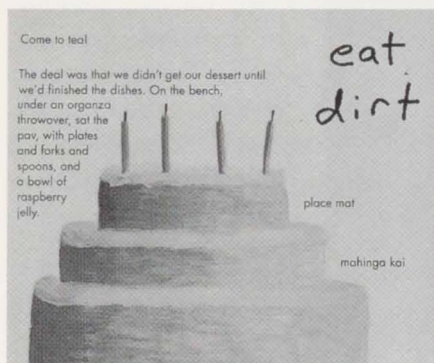 Come to tea!
The deal was that we didn't get our dessert until
we'd finished the dishes. On the bench,
under an organza
throwover, sat the
pav, with plates
and forks and
spoons, and
a bowl of
raspberry
jelly.
eat
dirt
place mat
mahinga kai